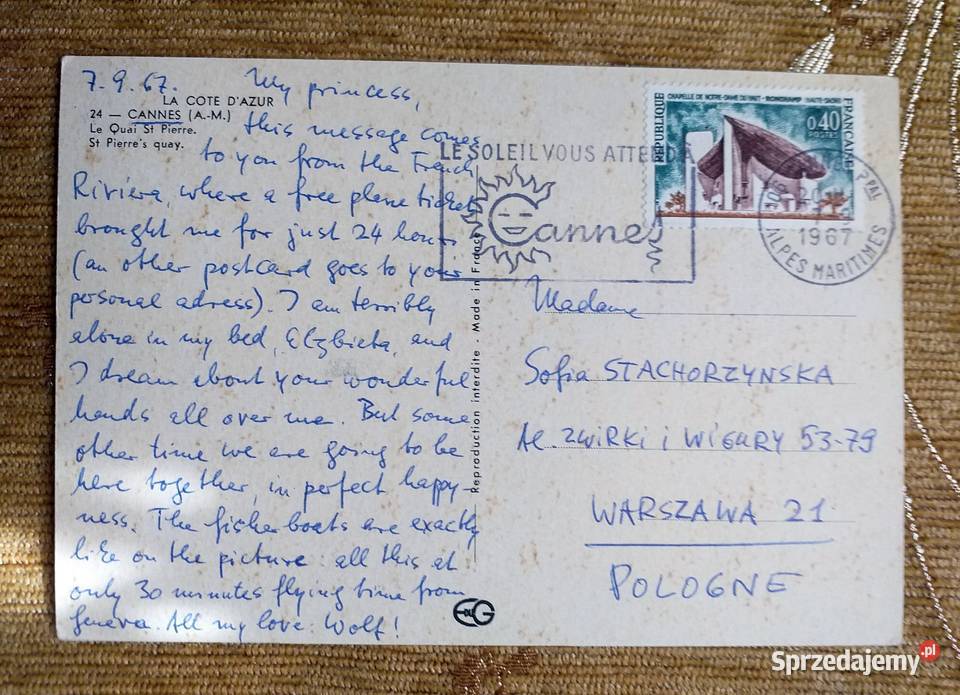 7.9.67. My princess,
LA COTE D'AZUR
24 — CANNES (A.-M.)
Le Quai St Pierre.
St Pierre's quay.
this message comes
to you from the French
Riviera, where a free plane ticket
brought me for just 24 hours
(an other postcard goes to your
personal adress). I am terribly
alone in my bed, Elzbieta, and
I dream about your wonderful
hands all over me. But some
other time we are going to be
here together, in perfect happy-
ness. The fisherboats are exactly
like on the picture: all this at
only 30 minutes flying time from
Geneva. All my love: Wolf!
Reproduction interdite - Made in France
EDUG
LE SOLEIL VOUS ATTEND A
Cannes
RÉPUBLIQUE FRANÇAISE
CHAPELLE DE NOTRE-DAME DU HAUT - RONCHAMP (HAUTE-SAÔNE)
0,40
POSTES
PPAL
1967
ALPES MARITIMES
Madame
Sofia STACHORZYNSKA
Al. ZWIRKI i WIGURY 53-79
WARSZAWA 21
POLOGNE
Sprzedajemy.pl